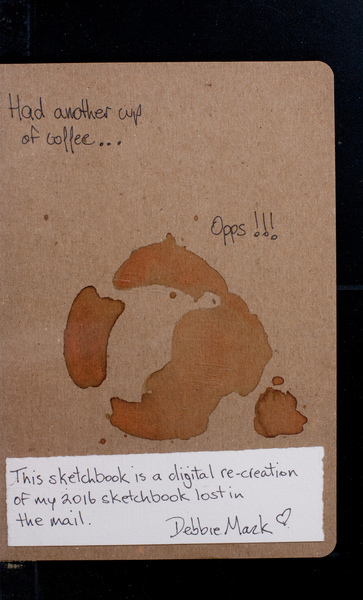 Had another cup
of coffee...
Opps!!!
This sketchbook is a digital re-creation
of my 2016 sketchbook lost in
the mail.
Debbie Mark ♡